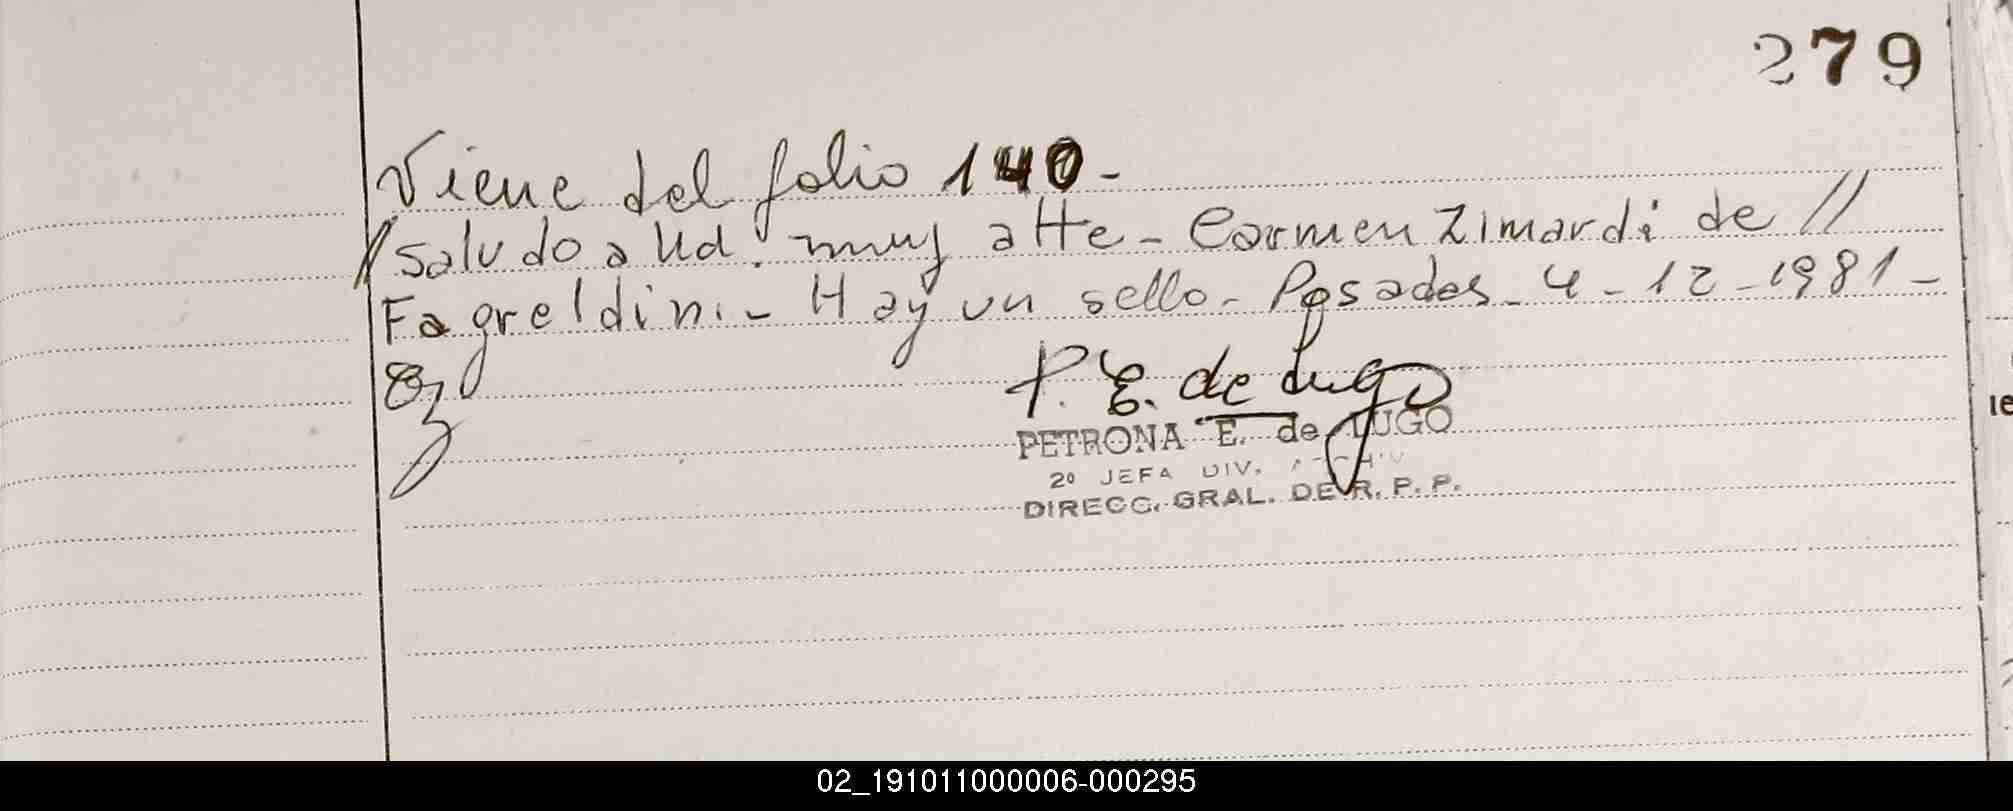 279
Viene del folio 140-
//saludo a Ud. muy atte- Carmen Zimardi de //
Fagreldini.- Hay un sello- Posadas- 4-12-1981-
P. E. de Lugo
PETRONA E. de LUGO
2º JEFA DIV.
DIRECC. GRAL. DE R. P. P.
02_191011000006-000295